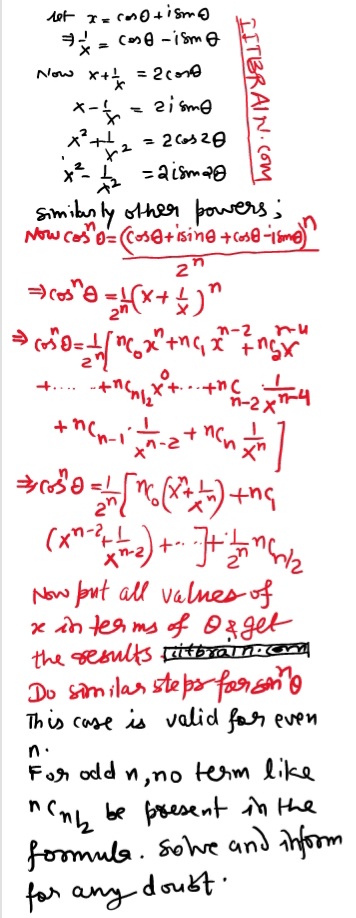 let x = cosθ + i sinθ
⇒ 1/x = cosθ - i sinθ
Now x + 1/x = 2cosθ
x - 1/x = 2i sinθ
x² + 1/x² = 2cos2θ
x² - 1/x² = 2i sin2θ
IITBRAIN.COM
similarly other powers;
Now cosⁿθ = (cosθ + i sinθ + cosθ - i sinθ)ⁿ / 2ⁿ
⇒ cosⁿθ = 1/2ⁿ (x + 1/x)ⁿ
⇒ cosⁿθ = 1/2ⁿ [ nC₀ xⁿ + nC₁ xⁿ⁻² + nC₂ xⁿ⁻⁴
+ ..... + nC_{n/2} x⁰ + ... + nC_{n-2} 1/xⁿ⁻⁴
+ nC_{n-1} · 1/xⁿ⁻² + nCₙ 1/xⁿ ]
⇒ cosⁿθ = 1/2ⁿ [ nC₀ (xⁿ + 1/xⁿ) + nC₁
(xⁿ⁻² + 1/xⁿ⁻²) + ... ] + 1/2ⁿ nC_{n/2}
Now put all values of
x in terms of θ & get
the results. iitbrain.com
Do similar steps for sinⁿθ
This case is valid for even
n.
For odd n, no term like
nC_{n/2} be present in the
formula. Solve and inform
for any doubt.